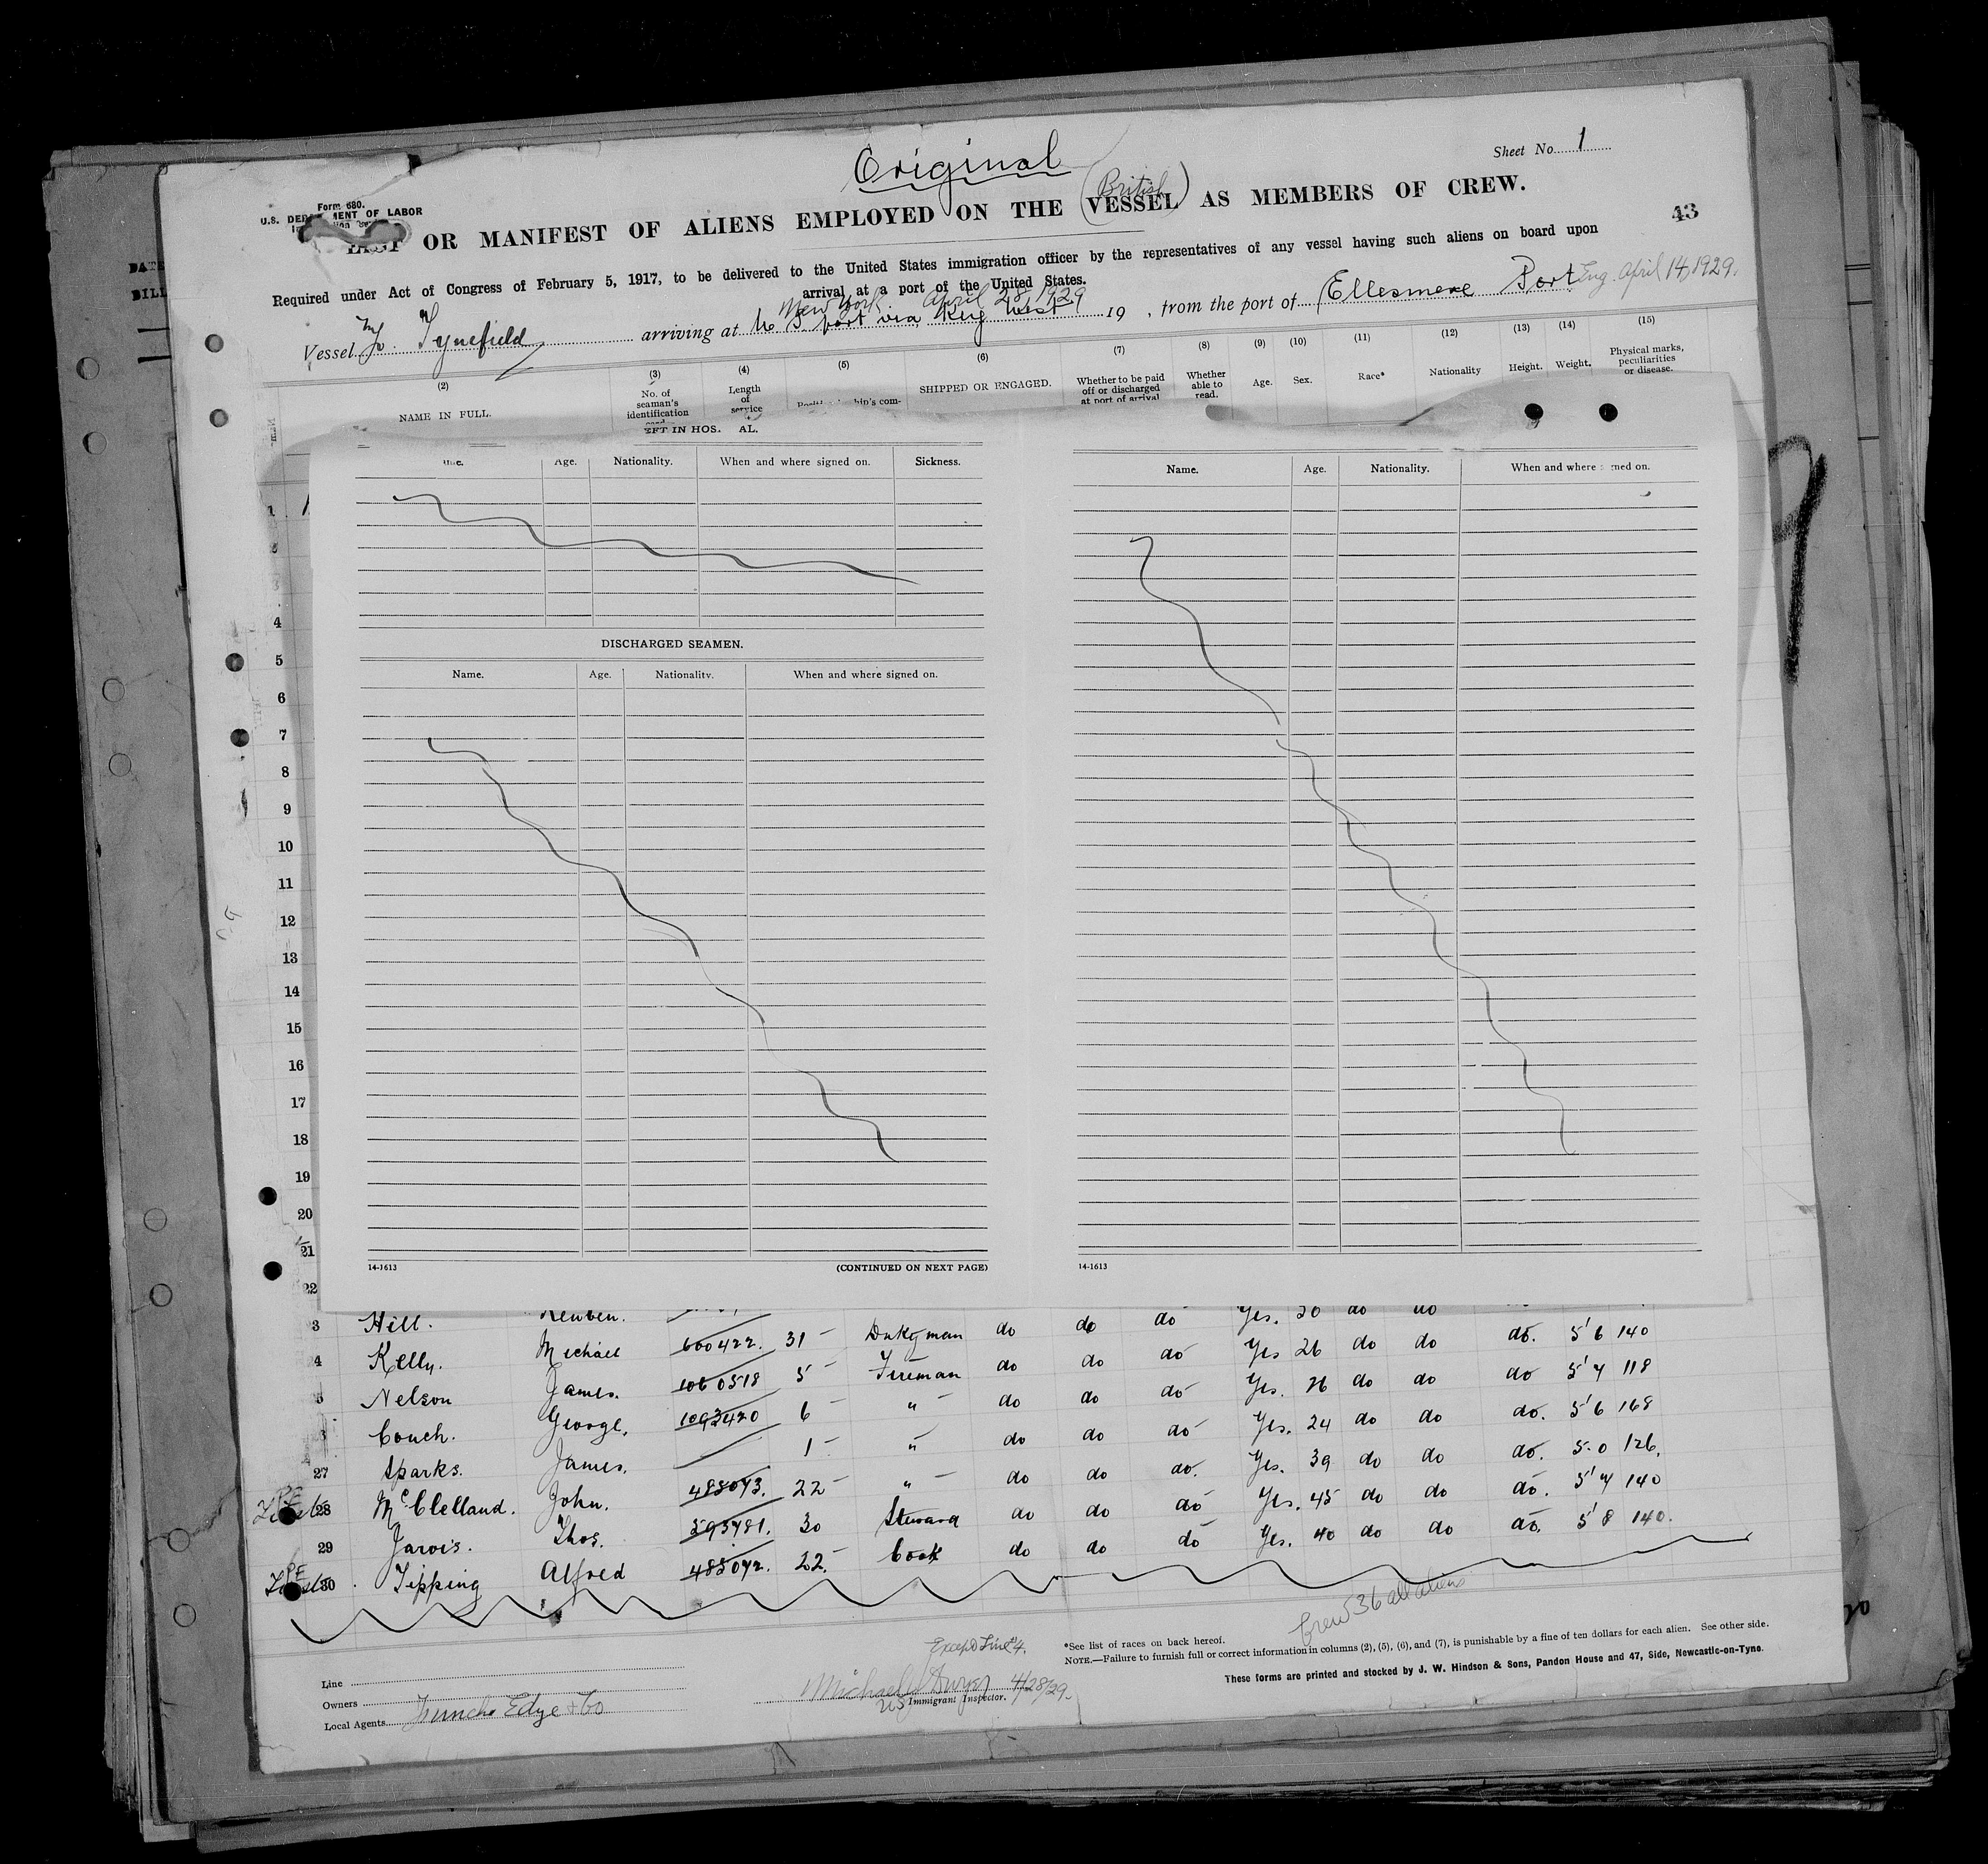 Original
Sheet No. 1
Form 680.
U.S. DEPARTMENT OF LABOR
(British)
LIST OR MANIFEST OF ALIENS EMPLOYED ON THE VESSEL AS MEMBERS OF CREW.
43
Required under Act of Congress of February 5, 1917, to be delivered to the United States immigration officer by the representatives of any vessel having such aliens on board upon
arrival at a port of the United States.
New York April 28 1929
Vessel Tynefield arriving at U S port via Key West 19 , from the port of Ellesmere Port Eng. April 14, 1929.
(2) (3) (4) (5) (6) (7) (8) (9) (10) (11) (12) (13) (14) (15)
NAME IN FULL. No. of seaman's identification Length of service SHIPPED OR ENGAGED. Whether to be paid off or discharged at port of arrival Whether able to read. Age. Sex. Race* Nationality Height. Weight. Physical marks, peculiarities or disease.
EFT IN HOS. AL.
Age. Nationality. When and where signed on. Sickness.
Name. Age. Nationality. When and where signed on.
1
2
3
4
DISCHARGED SEAMEN.
5
Name. Age. Nationality. When and where signed on.
6
7
8
9
10
11
12
13
14
15
16
17
18
19
20
21
14-1613 (CONTINUED ON NEXT PAGE)
14-1613
22
3 Hill. Reuben. Yes. 30 do do
4 Kelly. Michael 600422. 31 Dnkyman do do do Yes 26 do do do. 5'6 140
5 Nelson James. 1060518 5 Fireman do do do Yes. 26 do do do 5'4 118
Couch. George. 1093420 6 " do do do Yes. 24 do do do. 5'6 168
27 Sparks. James. 1 " do do do Yes. 39 do do do. 5.0 126.
28 McClelland. John. 485073. 22 " do do do. Yes. 45 do do do. 5'4 140
29 Jarvis. Thos. 593781. 30 Steward do do do Yes. 40 do do do. 5'8 140.
30 Tipping Alfred 485072. 22. Cook do do do
Crew 36 all aliens
Except Line 4.
*See list of races on back hereof.
NOTE.—Failure to furnish full or correct information in columns (2), (5), (6), and (7), is punishable by a fine of ten dollars for each alien. See other side.
These forms are printed and stocked by J. W. Hindson & Sons, Pandon House and 47, Side, Newcastle-on-Tyne.
Line
Michael Dwyer 4/28/29.
Owners
US Immigrant Inspector.
Local Agents Funch Edye + Co